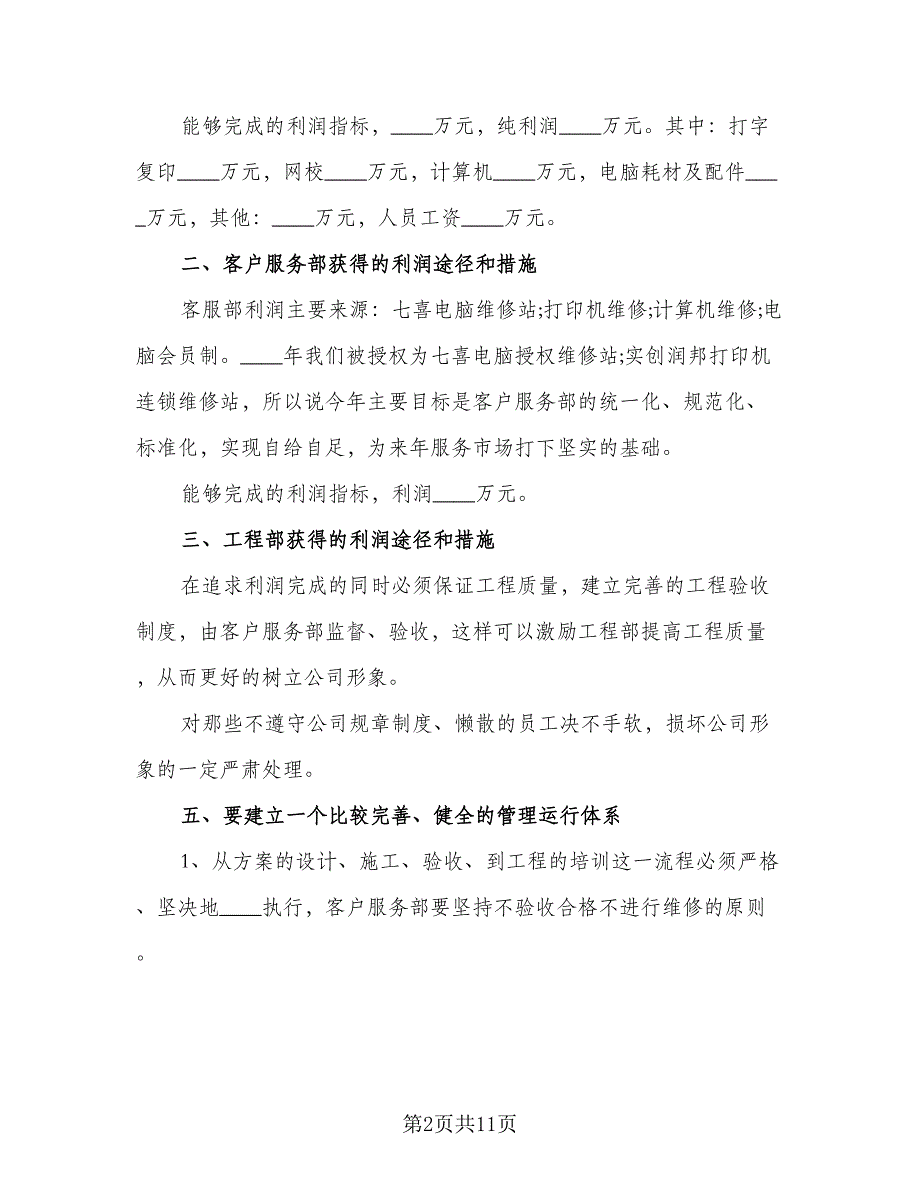 能够完成的利润指标，____万元，纯利润____万元。其中：打字
复印____万元，网校____万元，计算机____万元，电脑耗材及配件___
_万元，其他：____万元，人员工资____万元。
二、客户服务部获得的利润途径和措施
客服部利润主要来源：七喜电脑维修站;打印机维修;计算机维修;电
脑会员制。____年我们被授权为七喜电脑授权维修站;实创润邦打印机
连锁维修站，所以说今年主要目标是客户服务部的统一化、规范化、
标准化，实现自给自足，为来年服务市场打下坚实的基础。
能够完成的利润指标，利润____万元。
三、工程部获得的利润途径和措施
在追求利润完成的同时必须保证工程质量，建立完善的工程验收
制度，由客户服务部监督、验收，这样可以激励工程部提高工程质量
，从而更好的树立公司形象。
对那些不遵守公司规章制度、懒散的员工决不手软，损坏公司形
象的一定严肃处理。
五、要建立一个比较完善、健全的管理运行体系
1、从方案的设计、施工、验收、到工程的培训这一流程必须严格
、坚决地____执行，客户服务部要坚持不验收合格不进行维修的原则
。
第2页共11页